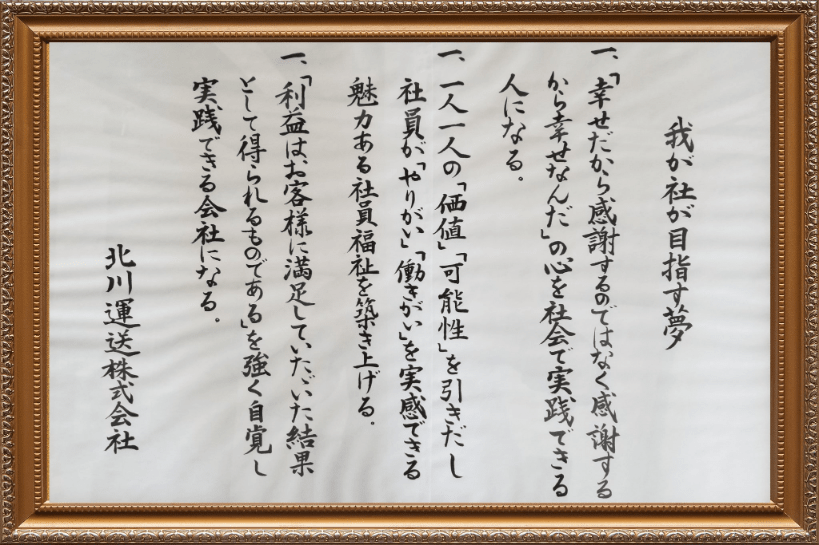 我が社が目指す夢
一、「幸せだから感謝するのではなく感謝する
から幸せなんだ」の心を社会で実践できる
人になる。
一、一人一人の「価値」「可能性」を引きだし
社員が「やりがい」「働きがい」を実感できる
魅力ある社員福祉を築き上げる。
一、「利益はお客様に満足していただいた結果
として得られるものである」を強く自覚し
実践できる会社になる。
北川運送株式会社